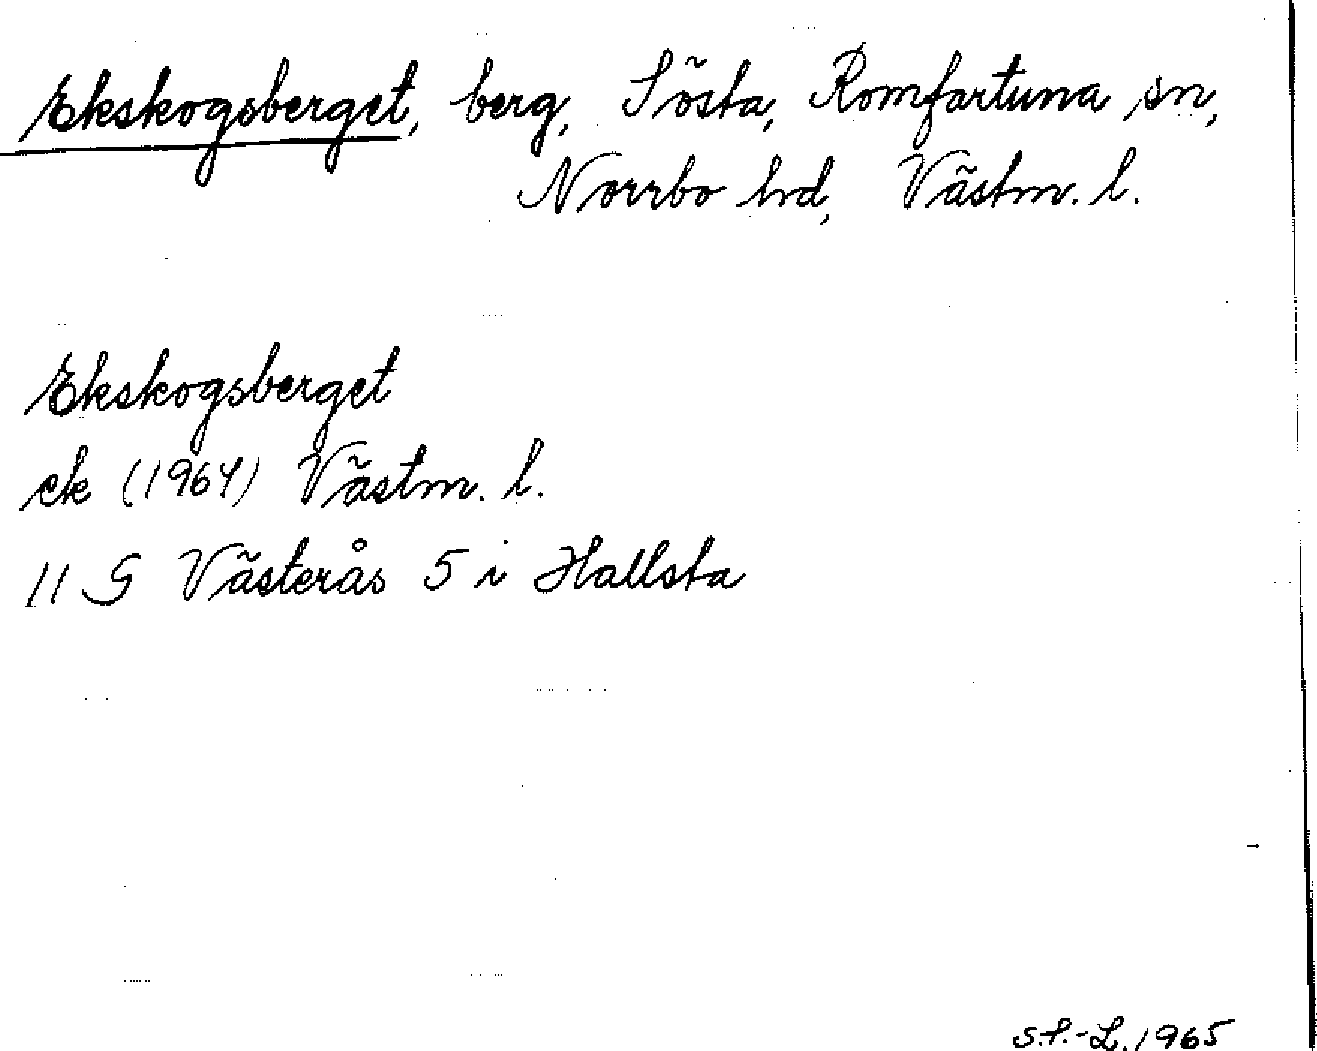 Ekskogsberget, berg, Sösta, Romfartuna sn,
Norrbo hd, Västm. l.
Ekskogsberget
ek (1964) Västm. l.
11 G Västerås 5 i Hallsta
S.P.-L. 1965